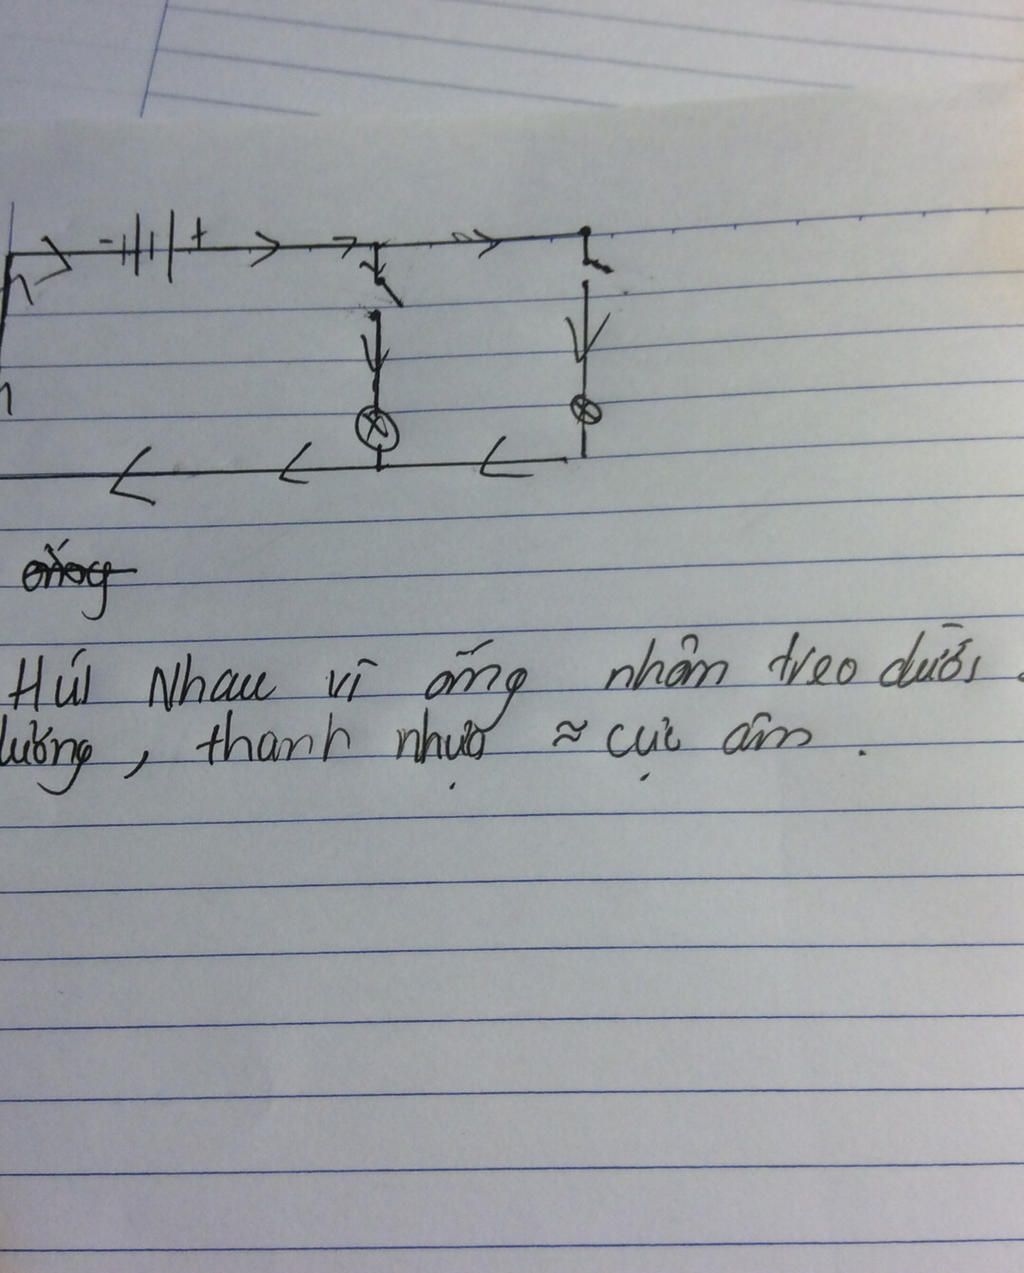 - +
ống
Hút Nhau vì ống nhôm treo dưới
dương, thanh nhựa ≈ cực âm.